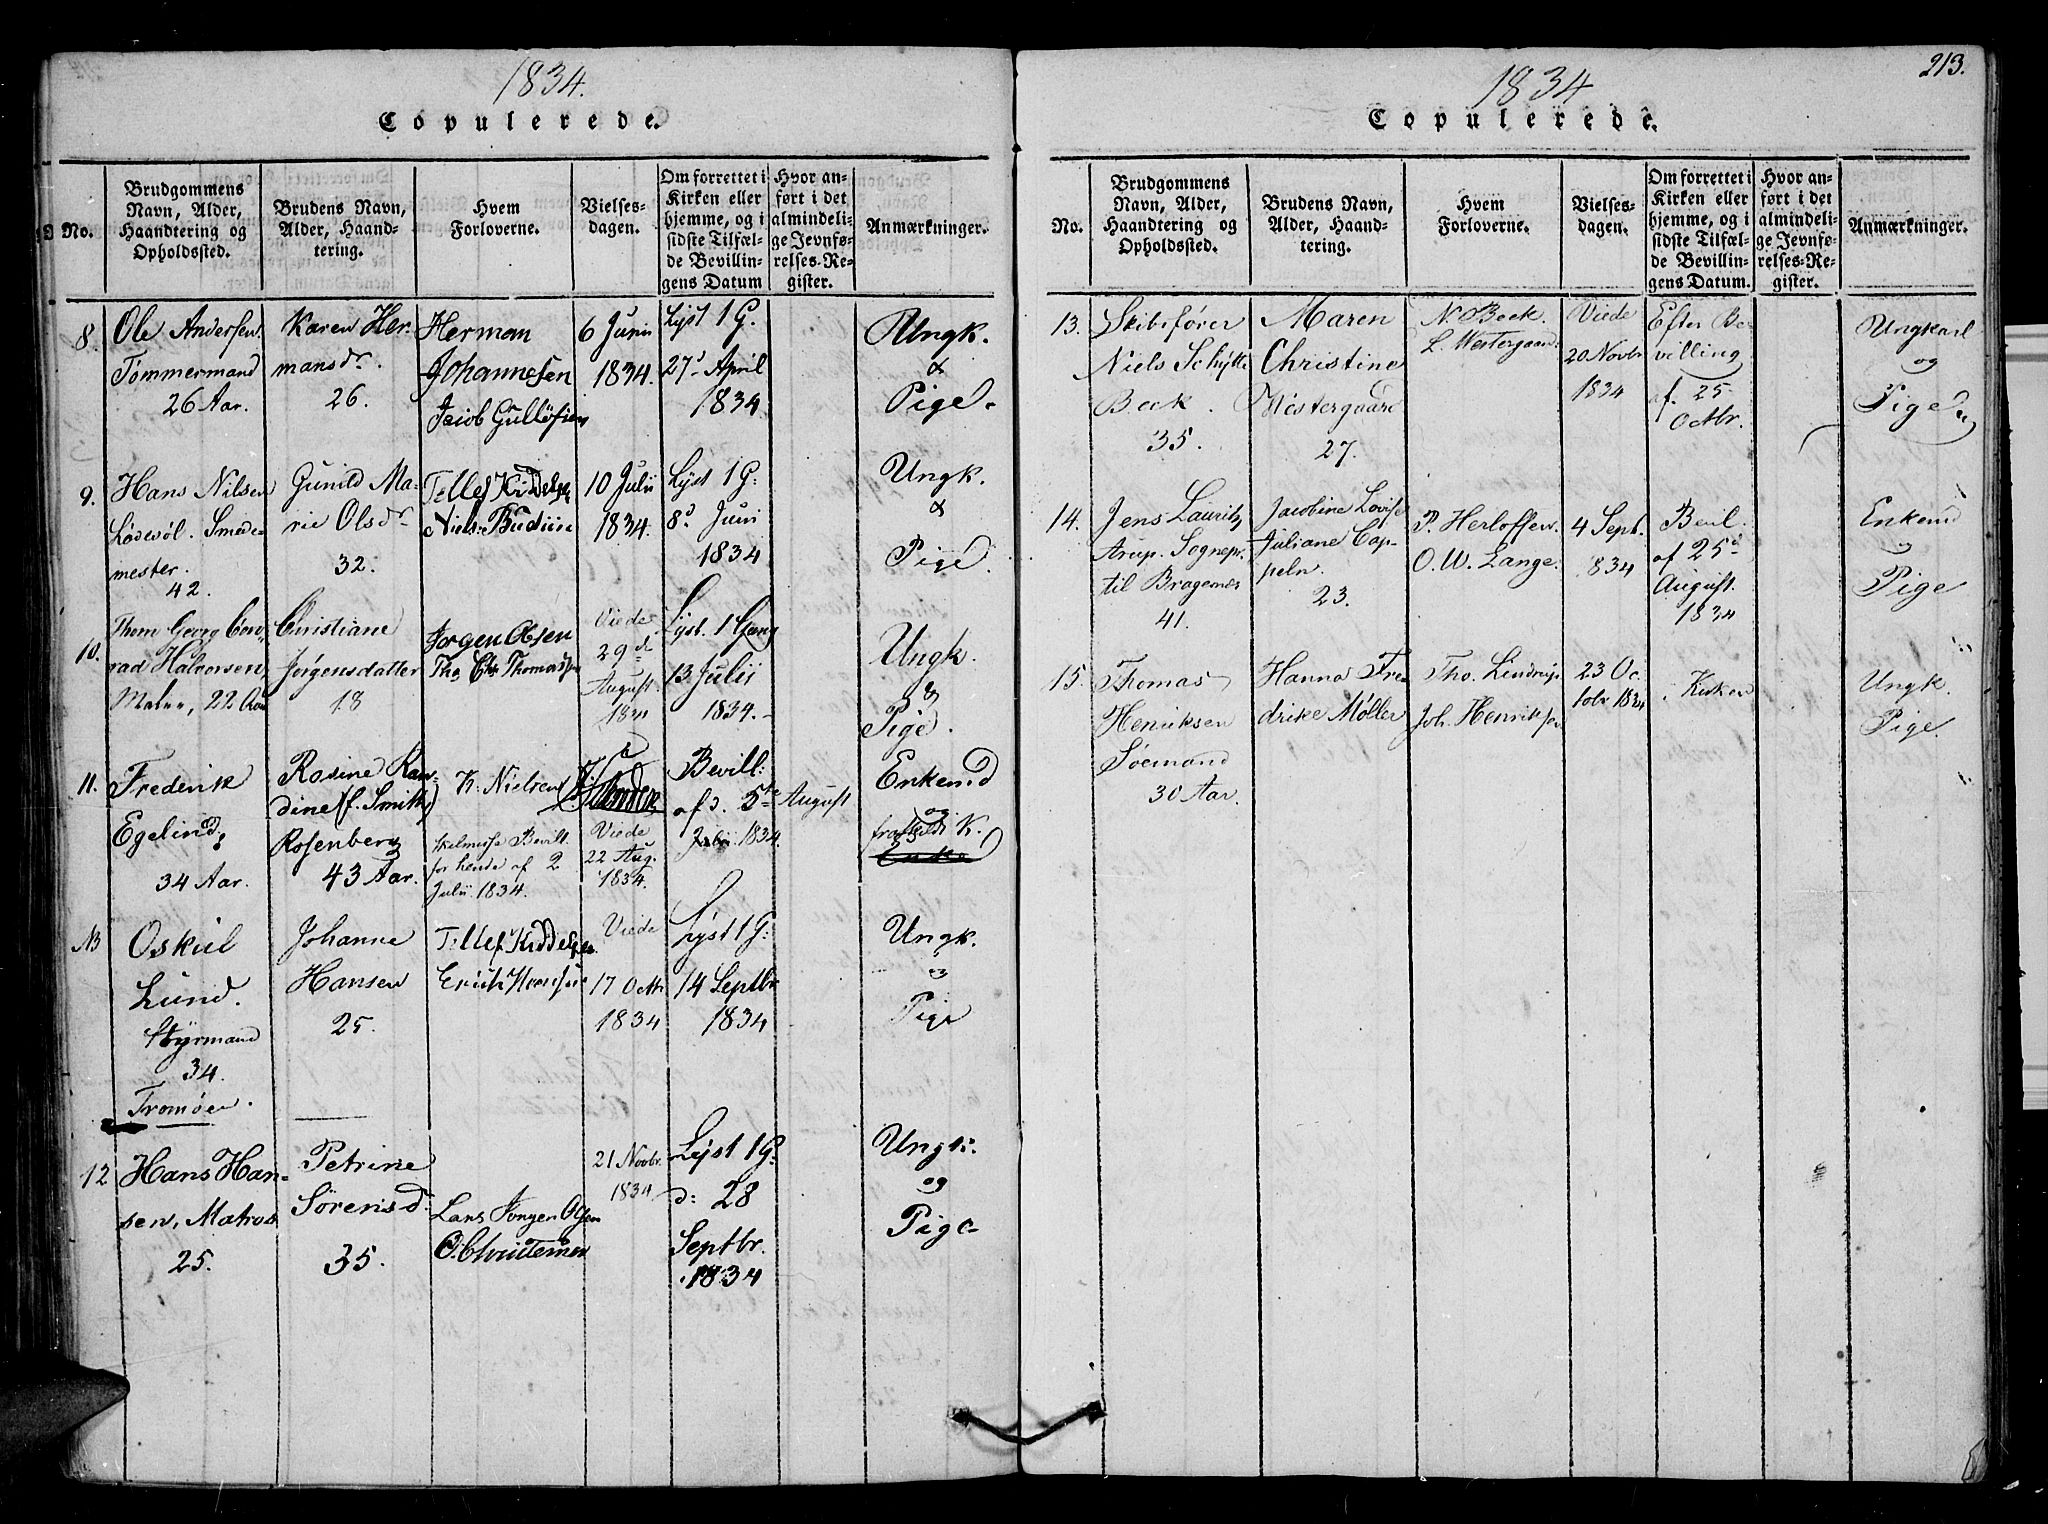 1834.
Copulerede.
No.
Brudgommens
Navn, Alder,
Haandtering og
Opholdssted.
Brudens Navn,
Alder, Haand-
tering.
Hvem
Forloverne.
Vielses-
dagen.
Om forrettet i
Kirken eller
hjemme, og i
sidste Tilfæl-
de Bevillin-
gens Datum
Hvor an-
ført i det
almindeli-
ge Jevnfø-
relses-Re-
gister.
Anmærkninger.
8.
Ole Andersen
Tømmermand
26 Aar.
Karen Her-
mansdr.
26.
Herman
Johannesen
Jacob Gulløfsen
6 Junii
1834.
Lyst 1 G.
27d April
1834
Ungk.
&
Pige.
9.
Hans Nilsen
Lødesøl. Smede-
mester.
42.
Gunild Ma-
rie Olsdr
32.
Tellef Kiddelsen
Niels
10 Julii
1834.
Lyst 1 G:
8d Juni
1834
Ungk.
&
Pige.
10.
Thom Georg Con-
rad Halvorsen,
22 Aar
Christiane
Jørgensdatter
18
Jørgen Olsen
Tho Chr Thomassen
Viede
29d
August
1834
Lyst. 1 Gang
13 Julii
1834.
Ungk.
&
Pige.
11.
Frederik
Egelind,
34 Aar.
Rosine Ran-
dine (f. Smith)
Rosenberg
43 Aar.
K. Nielsen
Skilmisse Bevill.
for hende af 2
Julii 1834.
Viede
22 Aug.
1834.
Bevill:
af d. 5te August
Julii 1834.
Enkemd
og
fraskildt K.
Enke
NB
Oskul
Lund.
Styrmand
34.
Tromøen.
Johanne
Hansen
25.
Tellef Kiddelsen
Erich
Viede
17 Octbr
1834
Lyst 1 G:
14 Septbr
1834
Ungk.
og
Pige
12
Hans Han-
sen, Matros
25.
Petrine
Sørensd.
35.
Lars Jørgen Olsen
O. Christensen
21 Novbr.
1834.
Lyst 1 G:
d: 28
Septbr.
1834
Ungk.
og
Pige
213.
1834
Copulerede.
No.
Brudgommens
Navn, Alder,
Haandtering og
Opholdssted.
Brudens Navn,
Alder, Haand-
tering.
Hvem
Forloverne.
Vielses-
dagen.
Om forrettet i
Kirken eller
hjemme, og i
sidste Tilfæl-
de Bevillin-
gens Datum.
Hvor an-
ført i det
almindeli-
ge Jevnfø-
relses-Re-
gister.
Anmærkninger.
13.
Skibsfører
Niels Schytte
Beck.
35.
Maren
Christine
Westergaard
27.
N Beck.
L. Westergaard
Viede
20 Novbr
1834
Efter Be-
villing
af. 25
Octbr.
Ungkarl
og
Pige
14.
Jens Lauritz
Arup. Sognepr.
til Bragernes
41.
Jacobine Lovise
Juliane Cap-
peln.
23.
P. Herlofsen
O. W. Lange.
4 Sept.
834
Bevl.
af 25d
August.
1834
Enkemd
og
Pige
15.
Thomas
Henriksen
Søemand
30 Aar.
Hanna Fre-
drike Møller
Tho. Lindrup
Joh. Henriksen
23 Oc
tobr 1834
i Kirken
Ungk.
Pige.